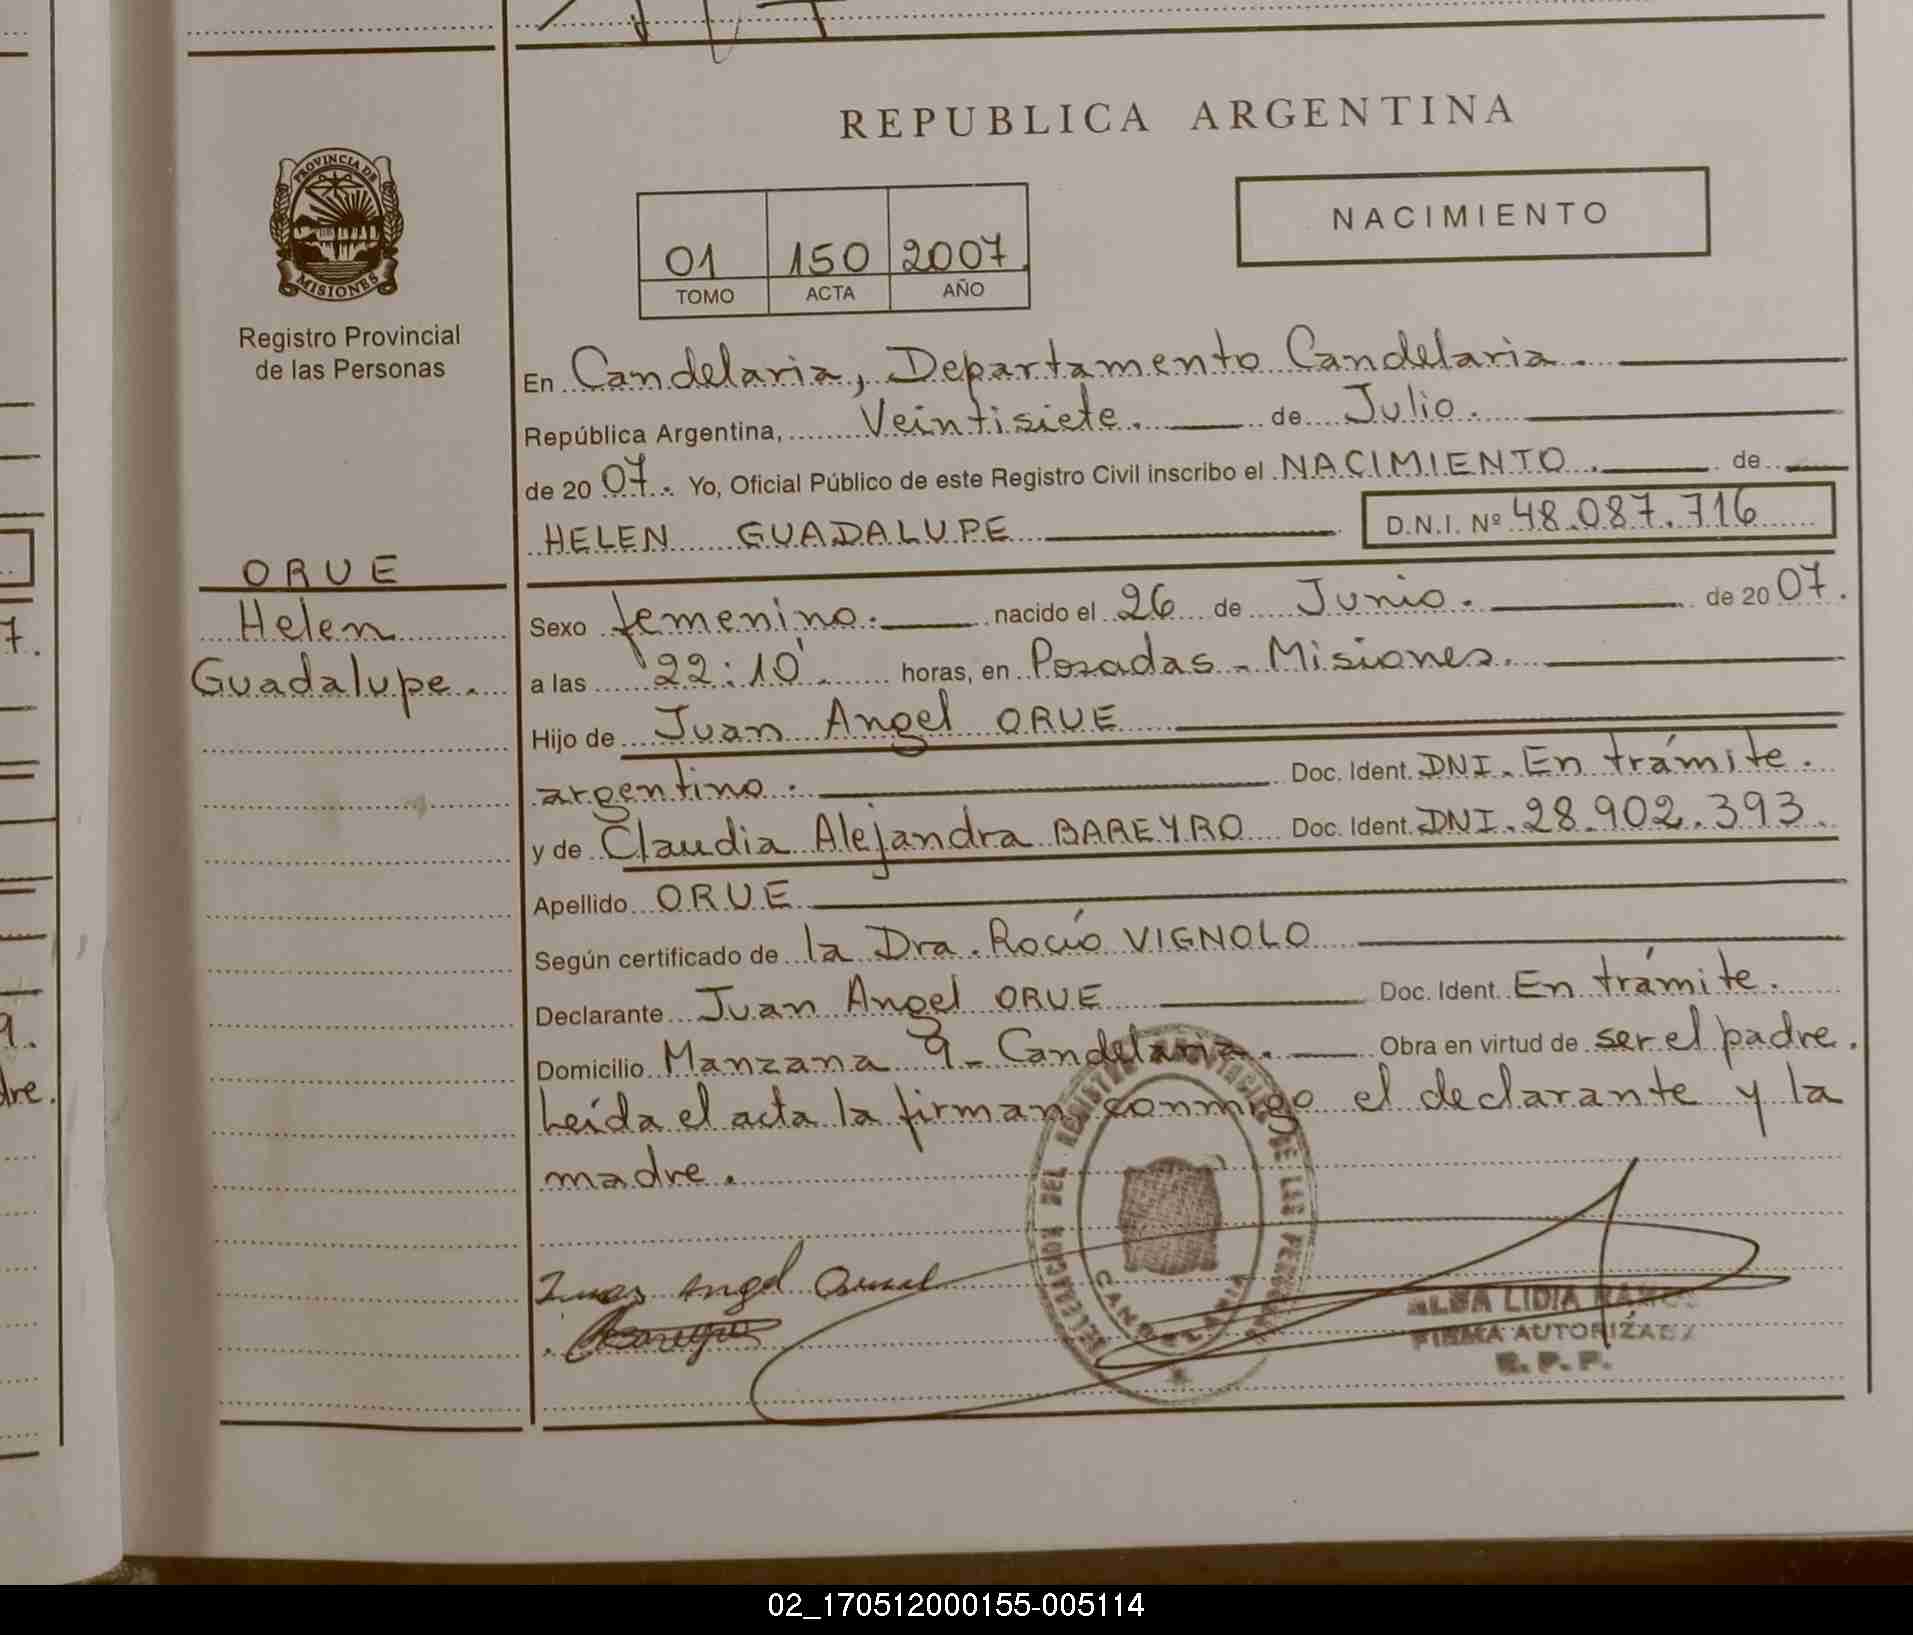 REPUBLICA ARGENTINA
PROVINCIA DE
MISIONES
Registro Provincial
de las Personas
NACIMIENTO
01 150 2007
TOMO ACTA AÑO
En Candelaria, Departamento Candelaria.
República Argentina, Veintisiete. de Julio.
de 2007. Yo, Oficial Público de este Registro Civil inscribo el NACIMIENTO. de
HELEN GUADALUPE D.N.I. Nº 48.087.716
ORUE
Helen
Guadalupe.
Sexo femenino. nacido el 26 de Junio. de 2007.
a las 22:10'. horas, en Posadas - Misiones.
Hijo de Juan Angel ORUE
argentino. Doc. Ident. DNI. En trámite.
y de Claudia Alejandra BAREYRO Doc. Ident. DNI. 28.902.393.
Apellido ORUE
Según certificado de la Dra. Rocío VIGNOLO
Declarante Juan Angel ORUE Doc. Ident. En trámite.
Domicilio Manzana 9 - Candelaria. Obra en virtud de ser el padre.
Leída el acta la firman conmigo el declarante y la
madre.
DELEGACION DEL REGISTRO PROVINCIAL DE LAS PERSONAS
CANDELARIA
Angel
ALBA LIDIA RAMOS
FIRMA AUTORIZADA
R. P. P.
7.
9.
dre.
02_170512000155-005114